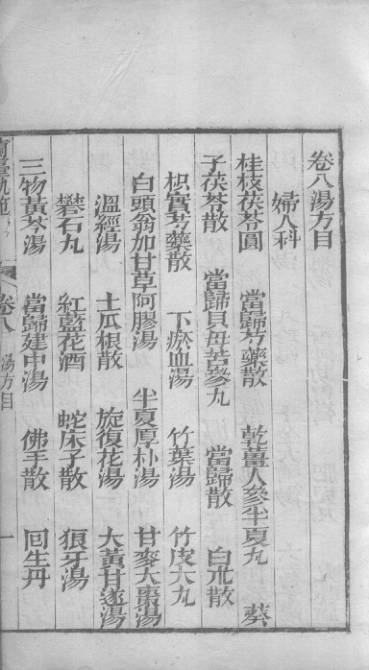 卷八湯方目
婦人科
桂枝茯苓圓 當歸芍藥散 乾薑人參半夏丸 葵
子茯苓散 當歸貝母苦參丸 當歸散 白朮散
枳實芍藥散 下瘀血湯 竹葉湯 竹皮大丸
白頭翁加甘草阿膠湯 半夏厚朴湯 甘麥大棗湯
溫經湯 土瓜根散 旋復花湯 大黃甘遂湯
礬石丸 紅藍花酒 蛇床子散 狼牙湯
三物黃芩湯 當歸建中湯 佛手散 回生丹
蘭臺軌範 卷八 湯方目 一